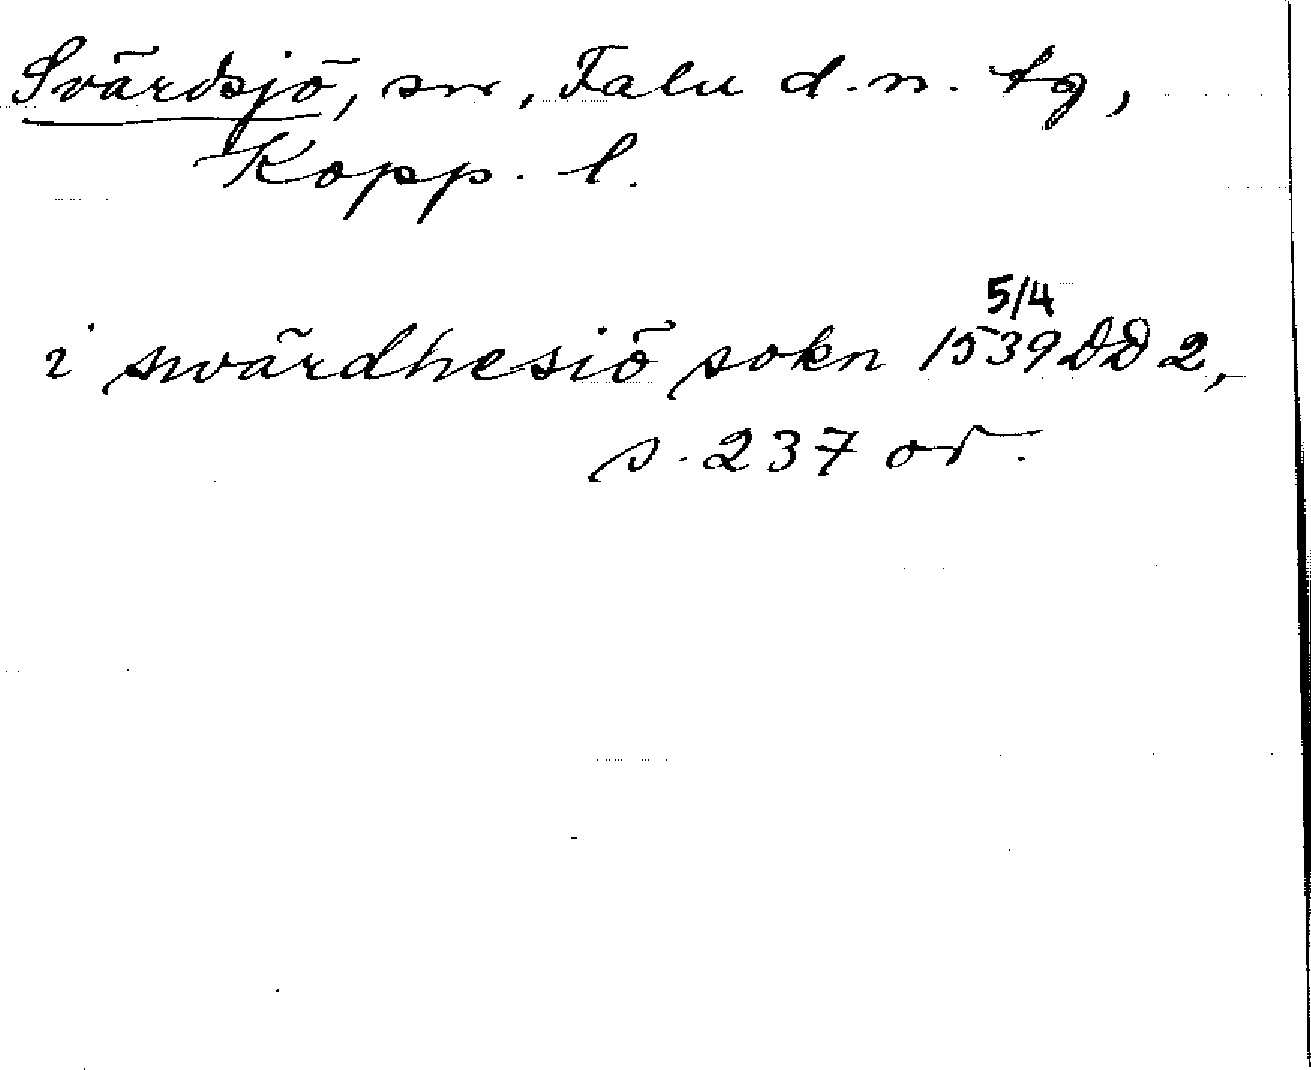 Svärdsjö, sn, Falu d. n. tg,
Kopp. l.
5/4
i swärdhesiö sokn 1539 DD 2,
s. 237 or.